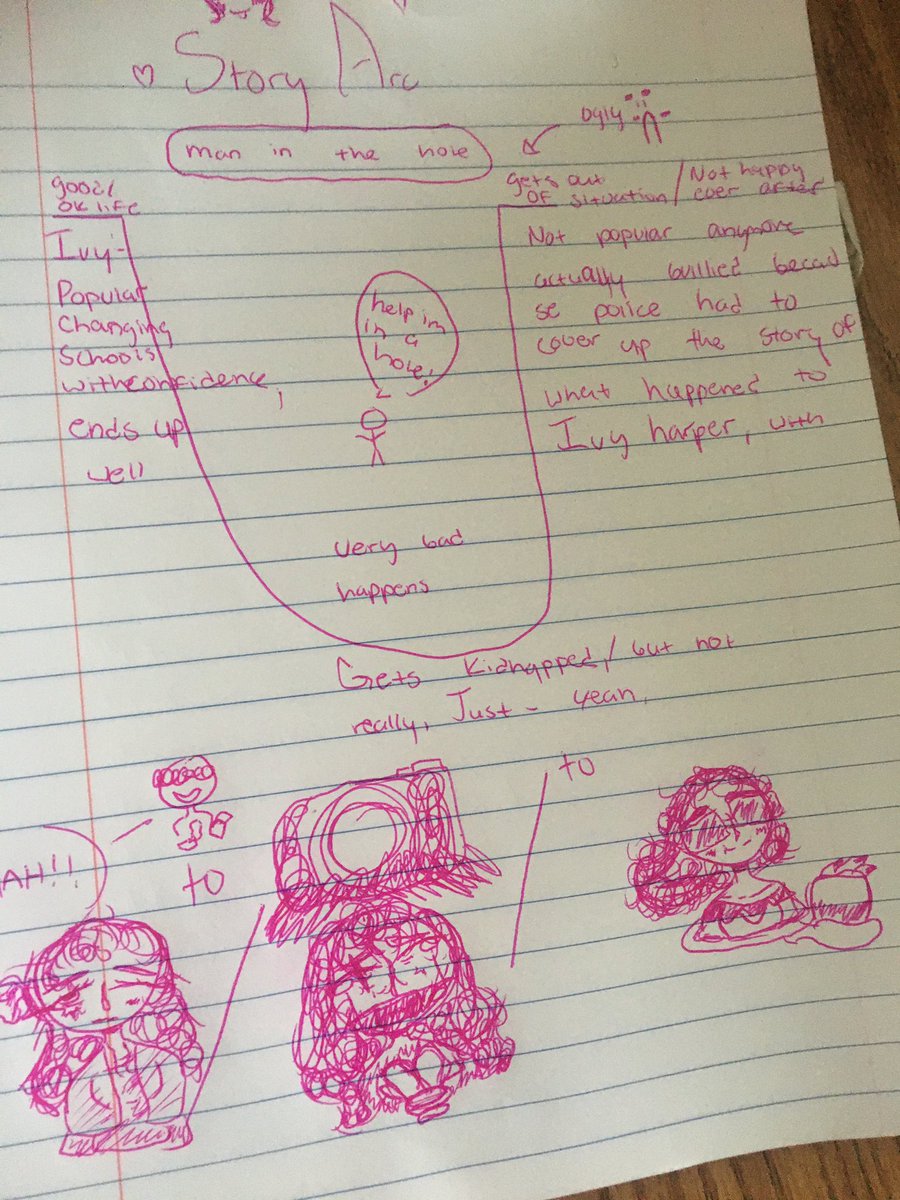 Story Arc
man in the hole
Ugly
good/
OK life
Ivy-
Popular
Changing
Schools
with confidence,
ends up
well
help im
in a
hole!
very bad
happens
gets out
OF situation / Not happy
ever after
Not popular anymore
actually bullied becau
se police had to
cover up the story of
what happened to
Ivy harper, with
Gets kidnapped/ but not
really, Just - yeah,
AH!!
to
to